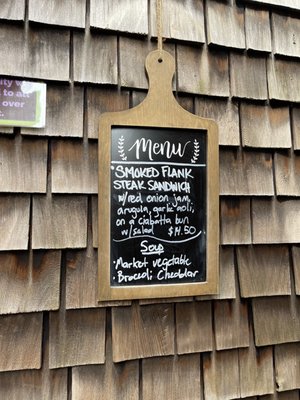 uity w
to all
over
Menu
* SMOKED FLANK
STEAK SANDWICH
w/ red onion jam,
arugula, garlic aoli,
on a ciabatta bun
w/ salad $14.50
Soup
· Market vegetable
· Broccoli Cheddar